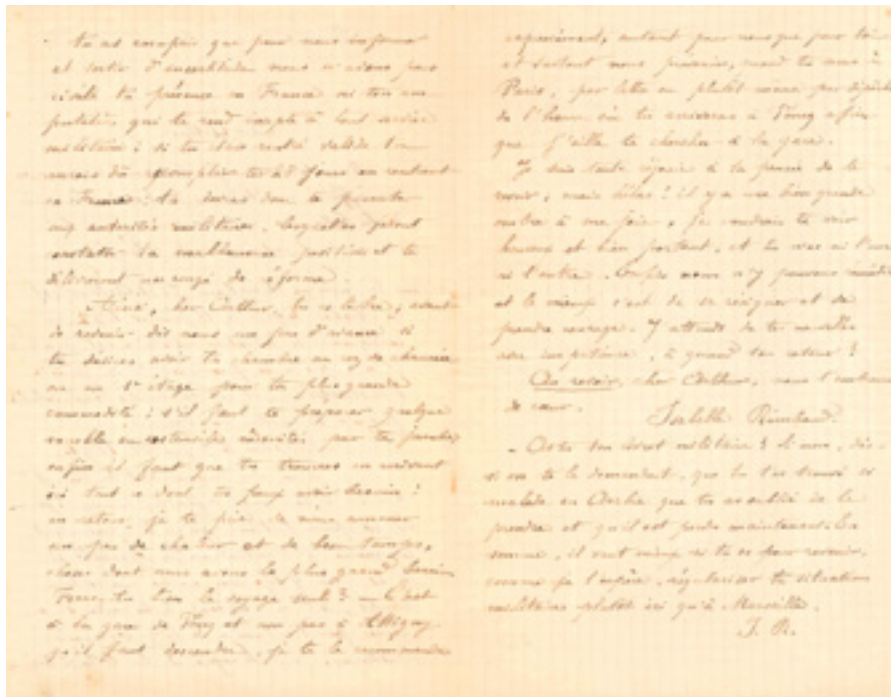 tu as compris que pour nous informer
et sortir d'incertitude nous n'avons pas
révélé ta présence en France ni ton am
putation qui te rend inapte à tout service
militaire : si tu étais resté valide tu
aurais dû accomplir tes jours en rentrant
en France. Tu devras donc te présenter
aux autorités militaires, lesquelles
constater ta malheureuse position et te
délivreront un congé de réforme.
Ainsi, cher Arthur, avant
de revenir dis nous un peu d'avance si
tu désires avoir ta chambre au rez de chaussée
ou au 1er étage pour ta plus grande
commodité ; s'il faut te préparer quelque
meuble ou ustensiles
enfin il faut que tu trouves en arrivant
ici tout ce dont tu peux avoir besoin !
en retour, je te prie de nous amener
un peu de chaleur et de beau temps,
chose dont nous avons le plus grand besoin
Feras-tu bien le voyage seul ? - C'est
à la gare de Voncq et non pas à Attigny
qu'il faut descendre, je te le recommande
expressément, autant pour nous que pour toi
et surtout nous prévenir, quand tu seras à
Paris, par lettre ou plutôt même par dépêche
de l'heure où tu arriveras à Voncq afin
que j'aille te chercher à la gare.
Je suis toute réjouie à la pensée de te
revoir, mais hélas ! il y a une bien grande
ombre à ma joie, je voudrais te voir
heureux et bien portant, et tu n'es ni l'un
ni l'autre. Enfin nous n'y pouvons remédier
et le mieux c'est de se résigner et de
prendre courage. J'attends de tes nouvelles
avec impatience, à quand ton retour ?
Au revoir, cher Arthur, nous t'embrassons
de cœur.
Isabelle Rimbaud.
- As-tu ton livret militaire ? Si non, dis-
si on te le demandait, que tu t'es trouvé si
malade en Arabie que tu as oublié de le
prendre et qu'il est perdu maintenant. En
somme, il vaut mieux si tu es pour revenir,
comme je l'espère, régulariser ta situation
militaire plutôt ici qu'à Marseille.
I. R.